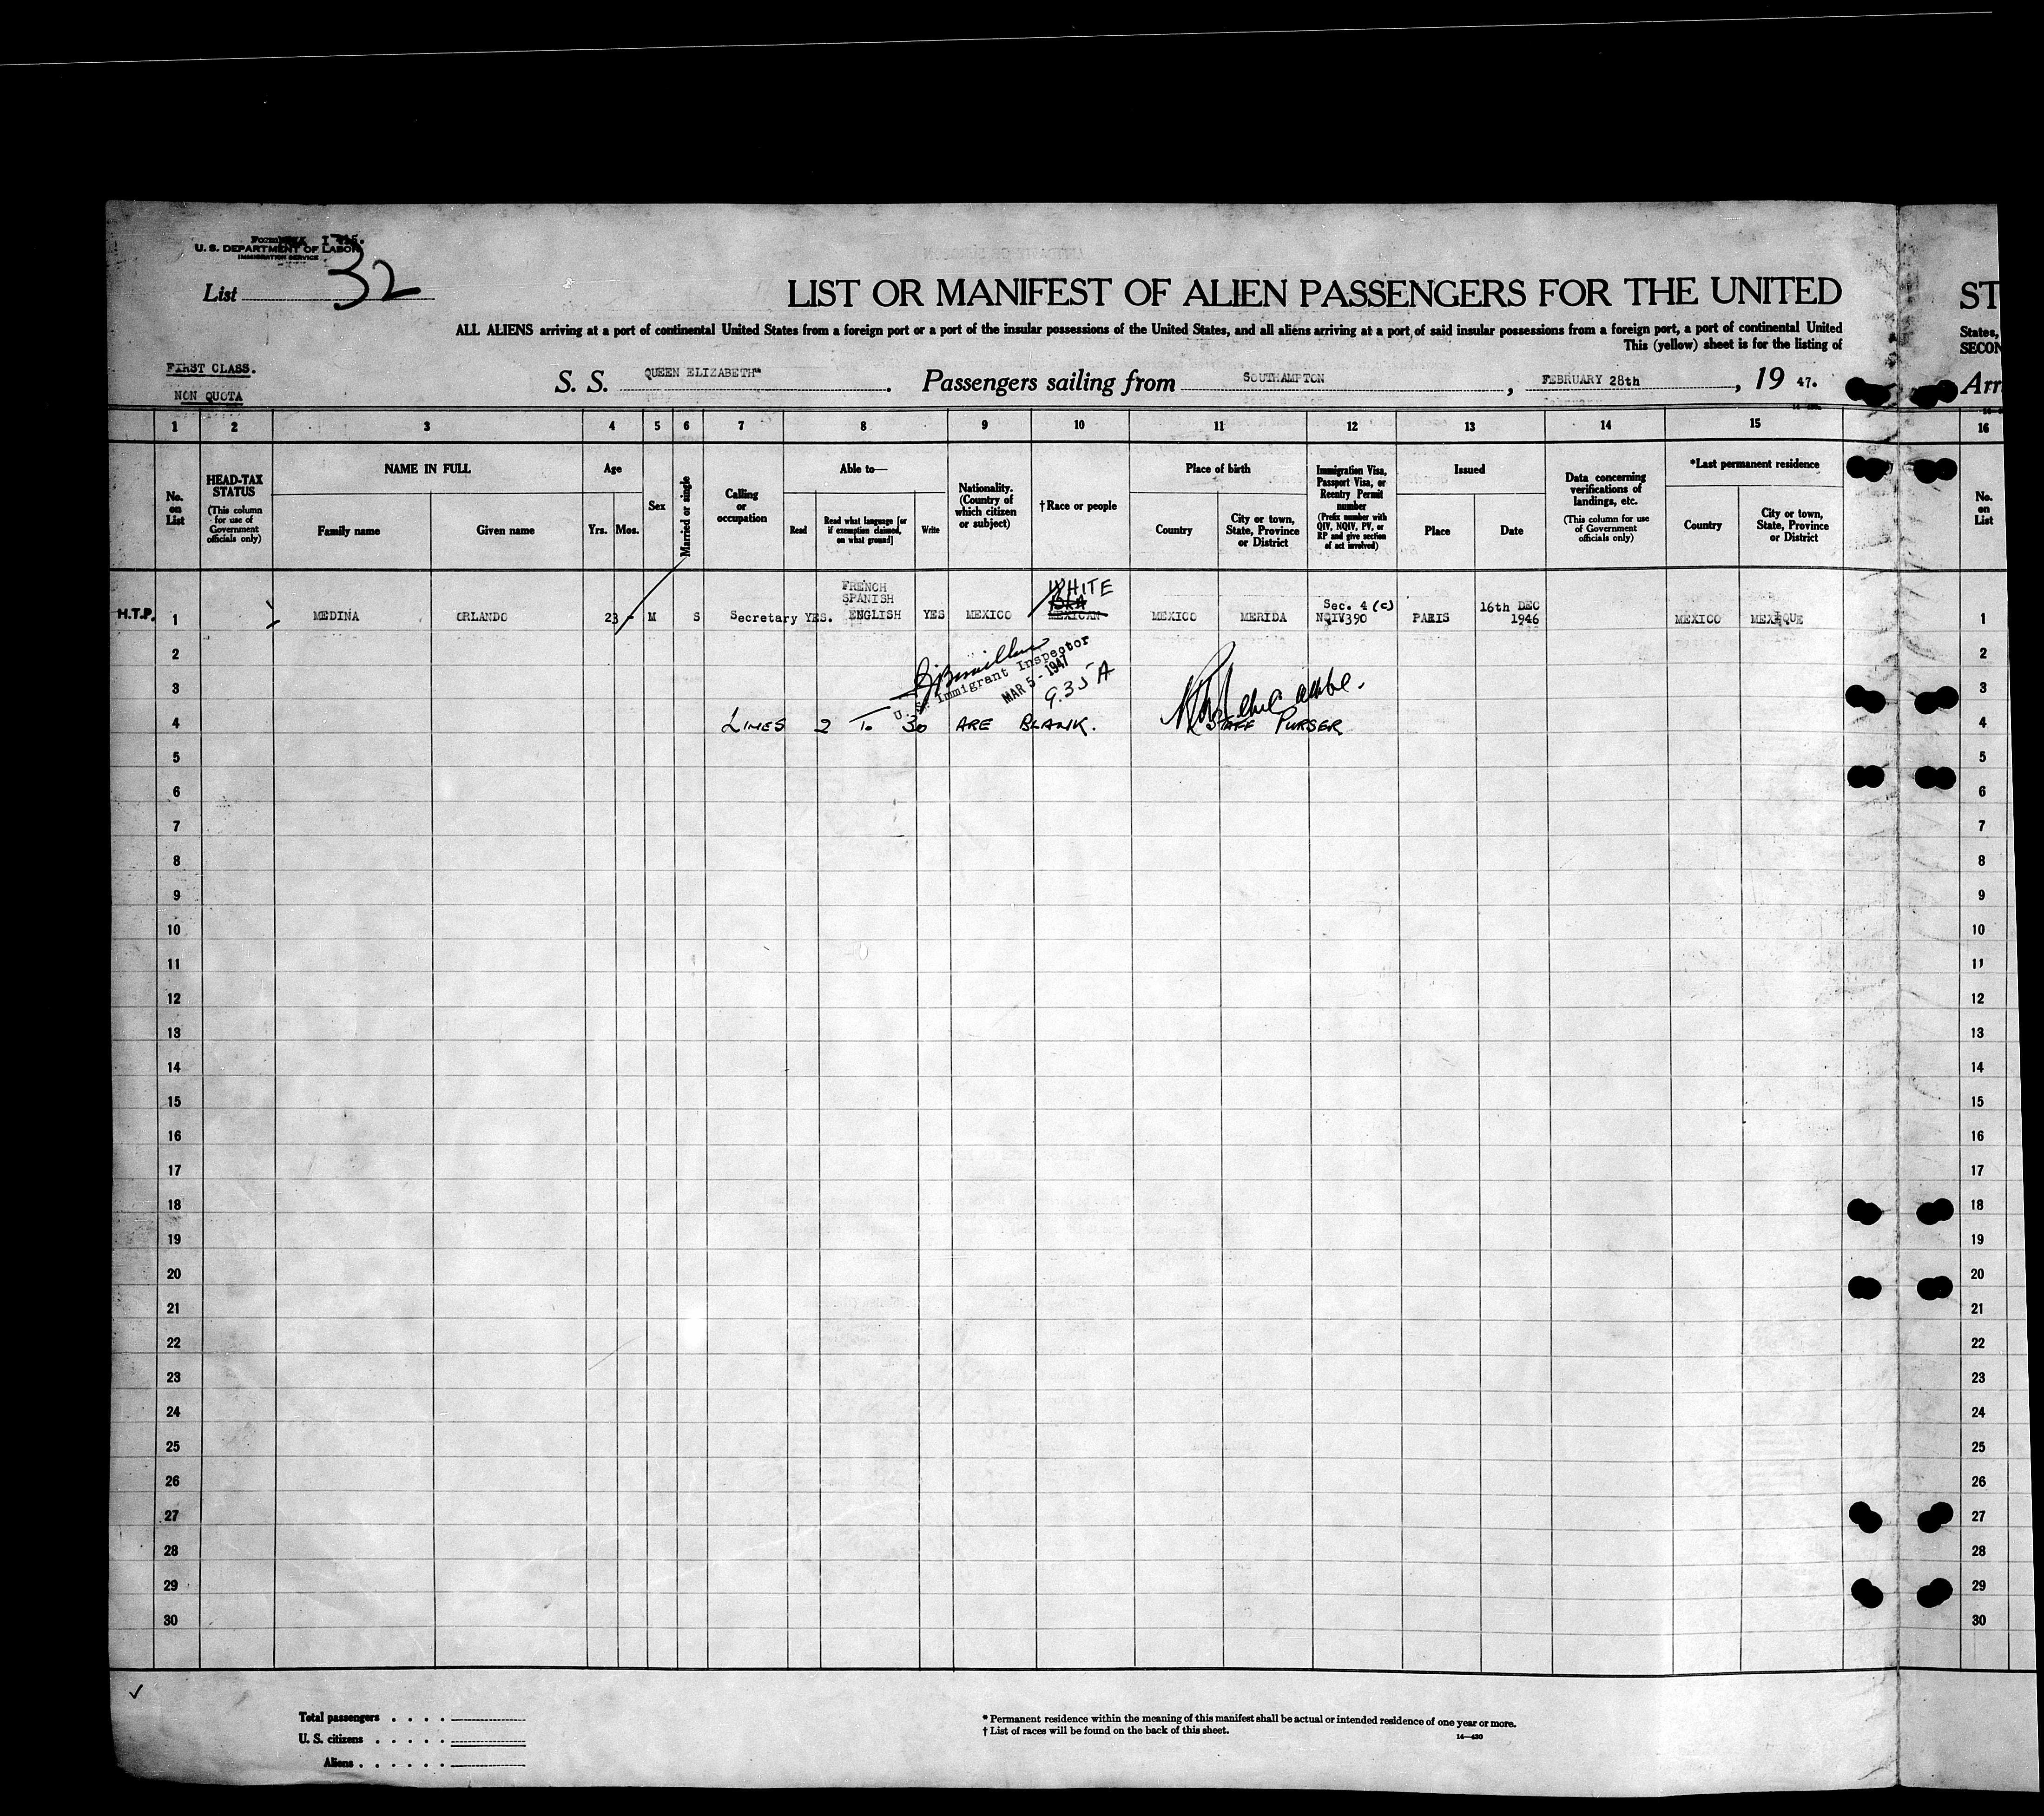 U. S. DEPARTMENT OF LABOR
IMMIGRATION SERVICE
List 32
LIST OR MANIFEST OF ALIEN PASSENGERS FOR THE UNITED ST
ALL ALIENS arriving at a port of continental United States from a foreign port or a port of the insular possessions of the United States, and all aliens arriving at a port of said insular possessions from a foreign port, a port of continental United States,
This (yellow) sheet is for the listing of SECON
FIRST CLASS.
NON QUOTA
S. S. QUEEN ELIZABETH" . Passengers sailing from SOUTHAMPTON , FEBRUARY 28th , 19 47. Arr
1 2 3 4 5 6 7 8 9 10 11 12 13 14 15 16
No. on List
HEAD-TAX STATUS (This column for use of Government officials only)
NAME IN FULL
Family name Given name
Age
Yrs. Mos.
Sex
Married or single
Calling or occupation
Able to—
Read Read what language [or if exemption claimed, on what ground] Write
Nationality. (Country of which citizen or subject)
†Race or people
Place of birth
Country City or town, State, Province or District
Immigration Visa, Passport Visa, or Reentry Permit number (Prefix number with QIV, NQIV, PV, or RP and give section of act involved)
Issued
Place Date
Data concerning verifications of landings, etc. (This column for use of Government officials only)
*Last permanent residence
Country City or town, State, Province or District
No. on List
FRENCH
SPANISH
WHITE
H.T.P. 1 MEDINA ORLANDO 23 - M S Secretary YES. ENGLISH YES MEXICO MEXICAN MEXICO MERIDA Sec. 4 (c) NQIV390 PARIS 16th DEC 1946 MEXICO MEXIQUE 1
2 2
U. S. Immigrant Inspector
MAR 5 - 1947
9.35 A
3 3
4 LINES 2 To 30 ARE BLANK. STAFF PURSER 4
5 5
6 6
7 7
8 8
9 9
10 10
11 11
12 12
13 13
14 14
15 15
16 16
17 17
18 18
19 19
20 20
21 21
22 22
23 23
24 24
25 25
26 26
27 27
28 28
29 29
30 30
Total passengers . . . .
U. S. citizens . . . . .
Aliens . . . . . .
* Permanent residence within the meaning of this manifest shall be actual or intended residence of one year or more.
† List of races will be found on the back of this sheet.
14—430